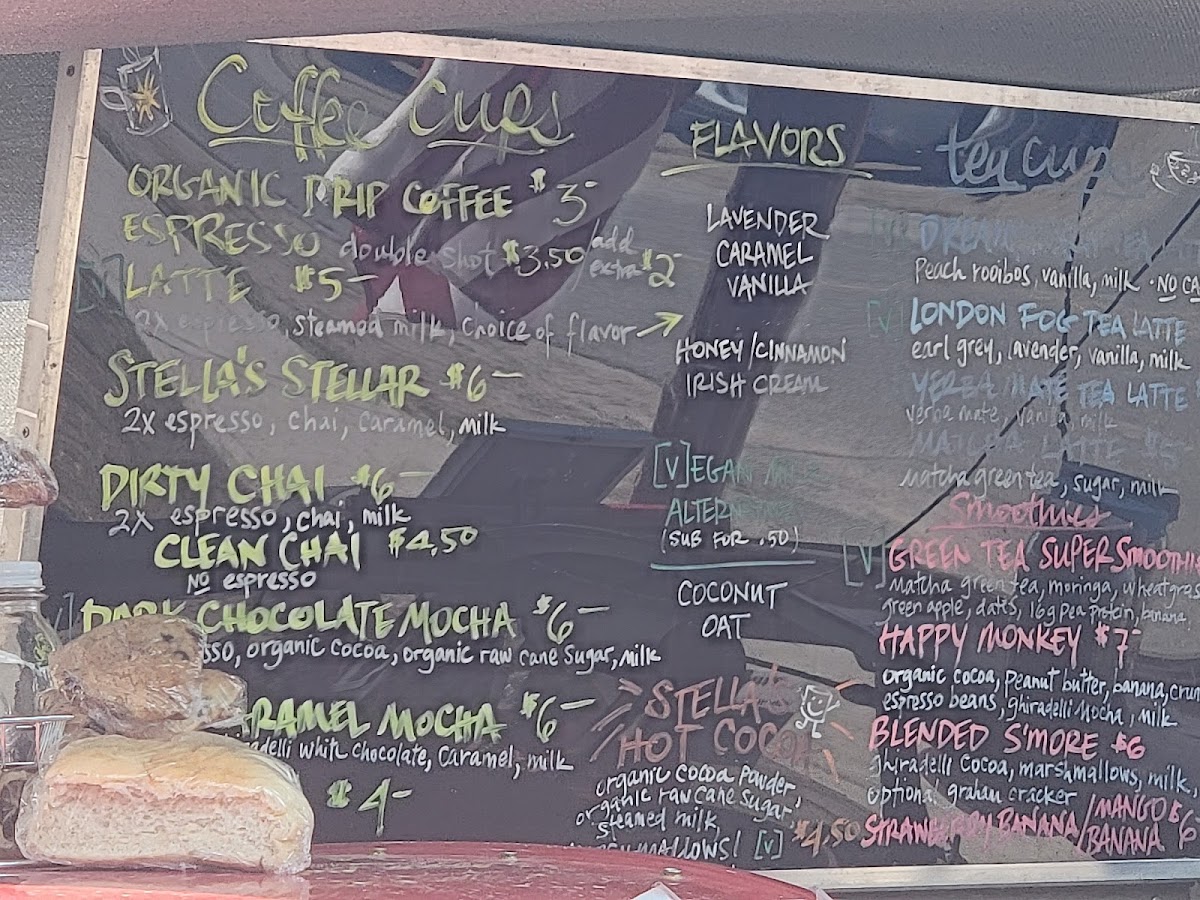 Coffee Cups
ORGANIC DRIP COFFEE $3-
ESPRESSO double shot $3.50 add extra $2-
LATTE $5-
2x espresso, steamed milk, choice of flavor
STELLA'S STELLAR $6-
2x espresso, chai, caramel, milk
DIRTY CHAI $6-
2x espresso, chai, milk
CLEAN CHAI $4.50
NO espresso
DARK CHOCOLATE MOCHA $6-
organic cocoa, organic raw cane sugar, milk
MOCHA $6-
white chocolate, caramel, milk
$4-
FLAVORS
LAVENDER
CARAMEL
VANILLA
HONEY/CINNAMON
IRISH CREAM
[V]EGAN
(SUB FOR .50)
COCONUT
OAT
STELLA'S
HOT COCOA
organic cocoa powder,
organic raw cane sugar,
steamed milk
[V] $4.50
tea cups
Peach rooibos, vanilla, milk - NO
[V] LONDON FOG TEA LATTE
earl grey, lavender, vanilla, milk
YERBA MATE TEA LATTE
yerba mate, vanilla, milk
MATCHA LATTE $5
matcha green tea, sugar, milk
Smoothies
[V] GREEN TEA SUPER SMOOTHI
matcha green tea, moringa, wheatgras
green apple, dates, 16g pea protein, banana,
HAPPY MONKEY $7-
organic cocoa, peanut butter, banana, crus
espresso beans, ghiradelli mocha, milk
BLENDED S'MORE $6
ghiradelli cocoa, marshmallows, milk,
optional graham cracker
STRAWBERRY BANANA/MANGO BANANA $6